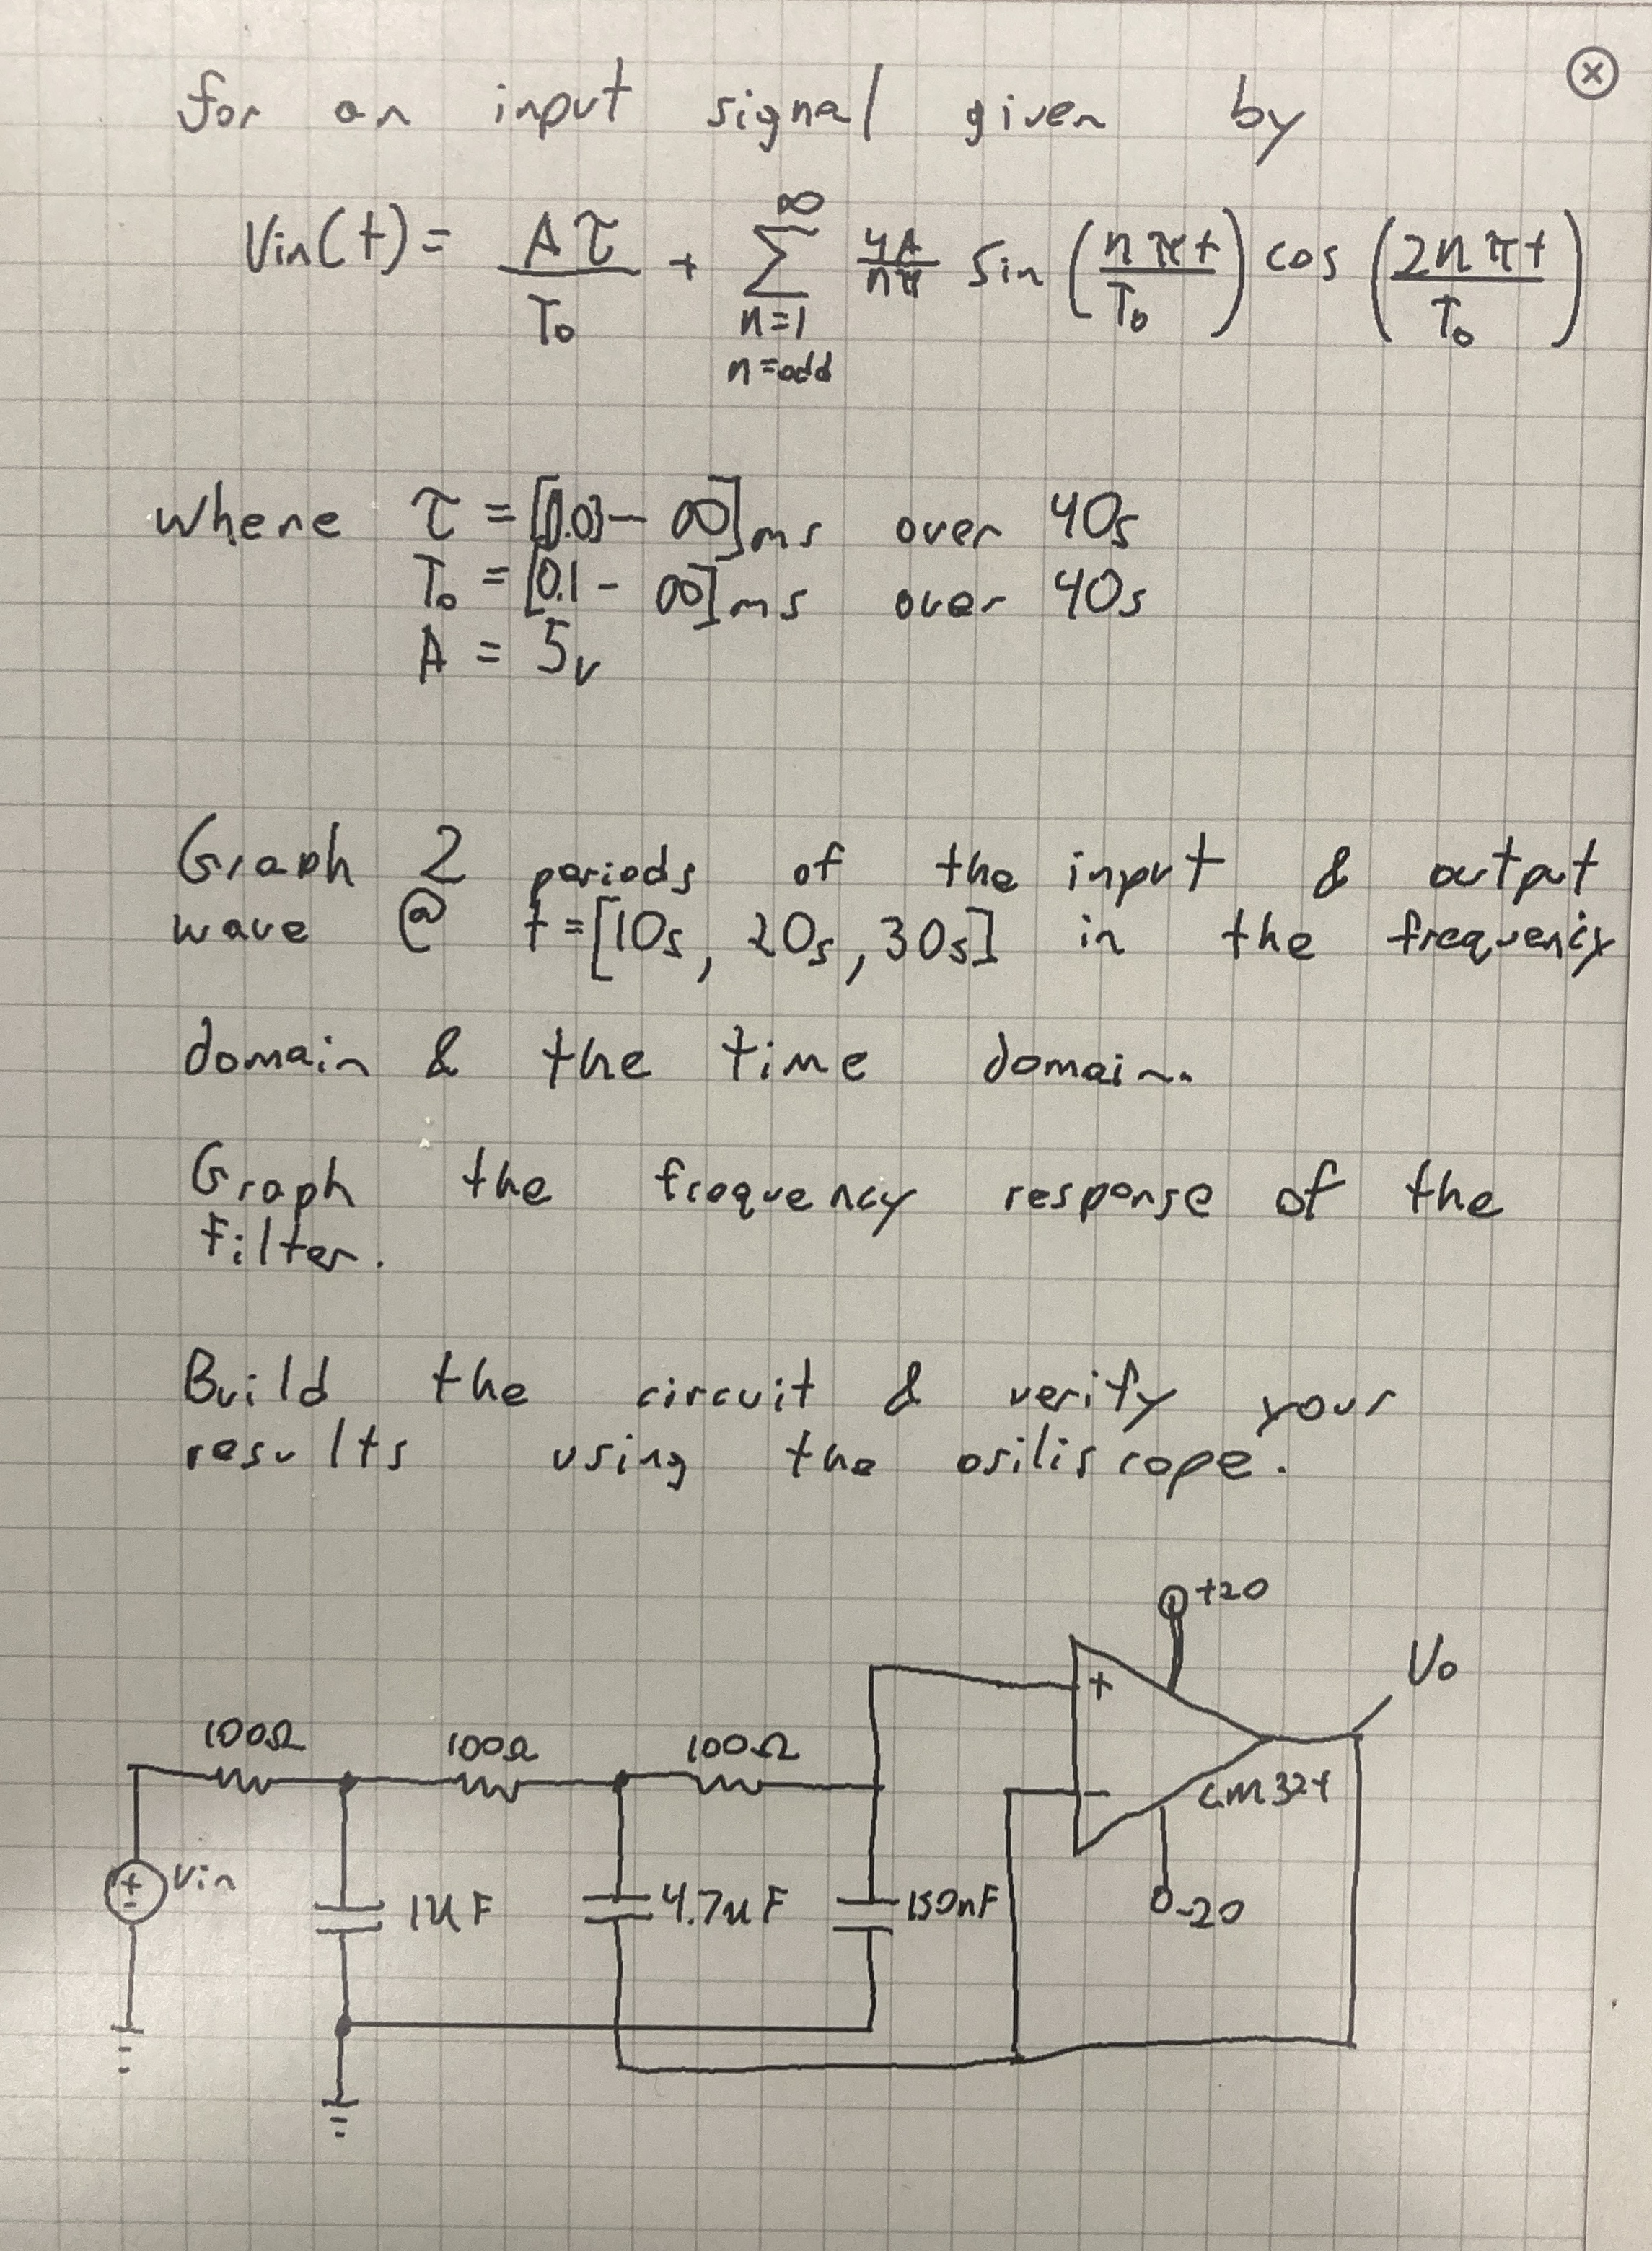 for an input signal given by
Vin(t) = Aτ/T₀ + ∑ 4A/nπ sin (nπt/T₀) cos (2nπt/T₀)
∞
n=1
n=odd
where τ = [0.03 – ∞]ms over 40s
T₀ = [0.1 – ∞]ms over 40s
A = 5v
Graph 2 periods of the input & output
wave @ t=[10s, 20s, 30s] in the frequency
domain & the time domain.
Graph the frequency response of the
Filter.
Build the circuit & verify your
results using the osiliscope.
+20
Vo
+
100Ω 100Ω 100Ω
−
LM324
+
−
Vin
1uF 4.7uF 150nF
-20